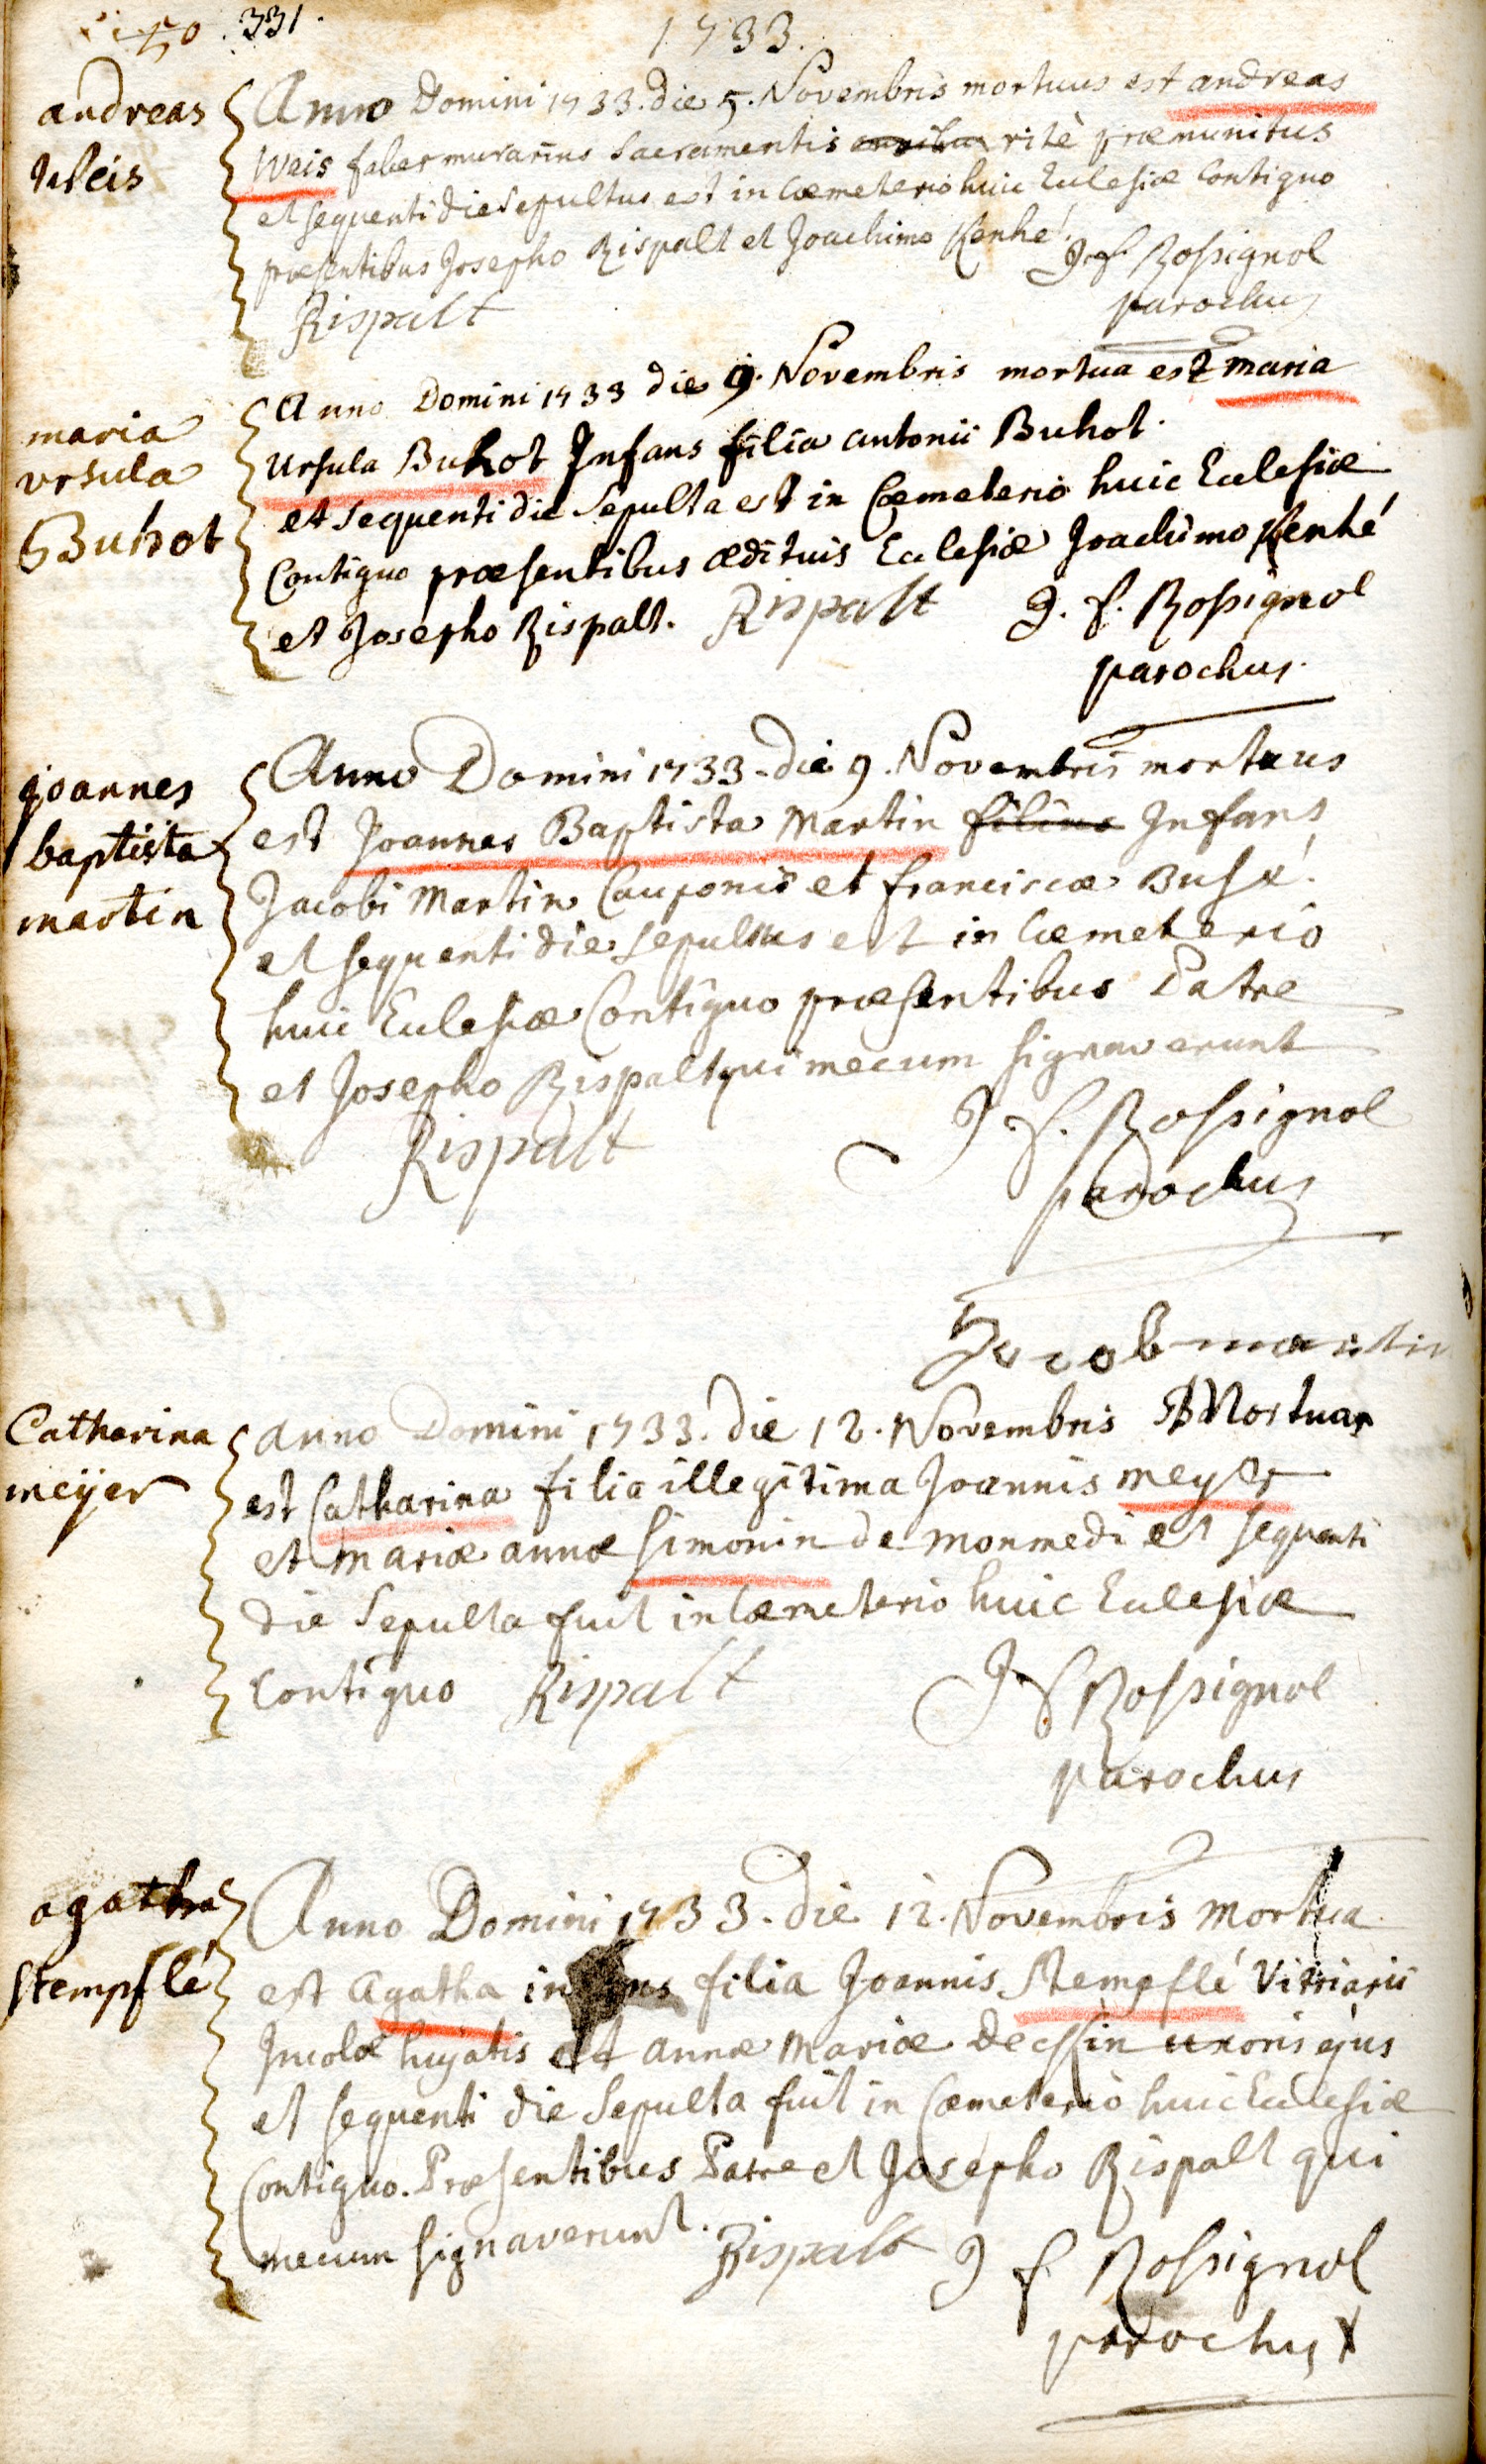 331.
1733.
andreas
Weis
Anno Domini 1733. die 5. Novembris mortuus est andreas
Weis faber murarius Sacramentis ritè præmunitus
et sequenti die Sepultus est in Cœmeterio huic Eclesiæ Contiguo
præsentibus Josepho Rispalt et Joachimo Kenhé.
J. f. Rossignol
Rispalt
parochus
maria
vrsula
Buhot
Anno Domini 1733 die 9. Novembris mortua est maria
Ursula Buhot Infans filia antonii Buhot.
et sequenti die Sepulta est in Cœmeterio huic Eclesiæ
Contiguo præsentibus ædituis Eclesiæ Joachimo Kenhé
et Josepho Rispalt. Rispalt J. f. Rossignol
parochus.
joannes
baptista
martin
Anno Domini 1733. die 9. Novembris mortuus
est Joannes Baptista Martin filius Infans
Jacobi Martin Cauponis et franciscæ
et sequenti die Sepultus est in Cœmeterio
huic Eclesiæ Contiguo præsentibus Patre
et Josepho Rispalt qui mecum signaverunt
Rispalt J f. Rossignol
parochus
Jacob martin
Catharina
meÿer
anno Domini 1733. die 12. Novembris Mortua
est Catharina filia illegitima Joannis meyer
et mariæ annæ Simonin de monmedi et sequenti
die Sepulta fuit in Cœmeterio huic Eclesiæ
Contiguo Rispalt J f Rossignol
parochus
agatha
stempflé
Anno Domini 1733. die 12. Novembris Mortua
est Agatha infans filia Joannis Stempflé Vitriarii
Incolæ hujatis et annæ Mariæ uxoris ejus
et sequenti die Sepulta fuit in Cœmeterio huic Eclesiæ
Contiguo. Præsentibus Patre et Josepho Rispalt qui
mecum signaverunt. Rispalt J f Rossignol
parochus